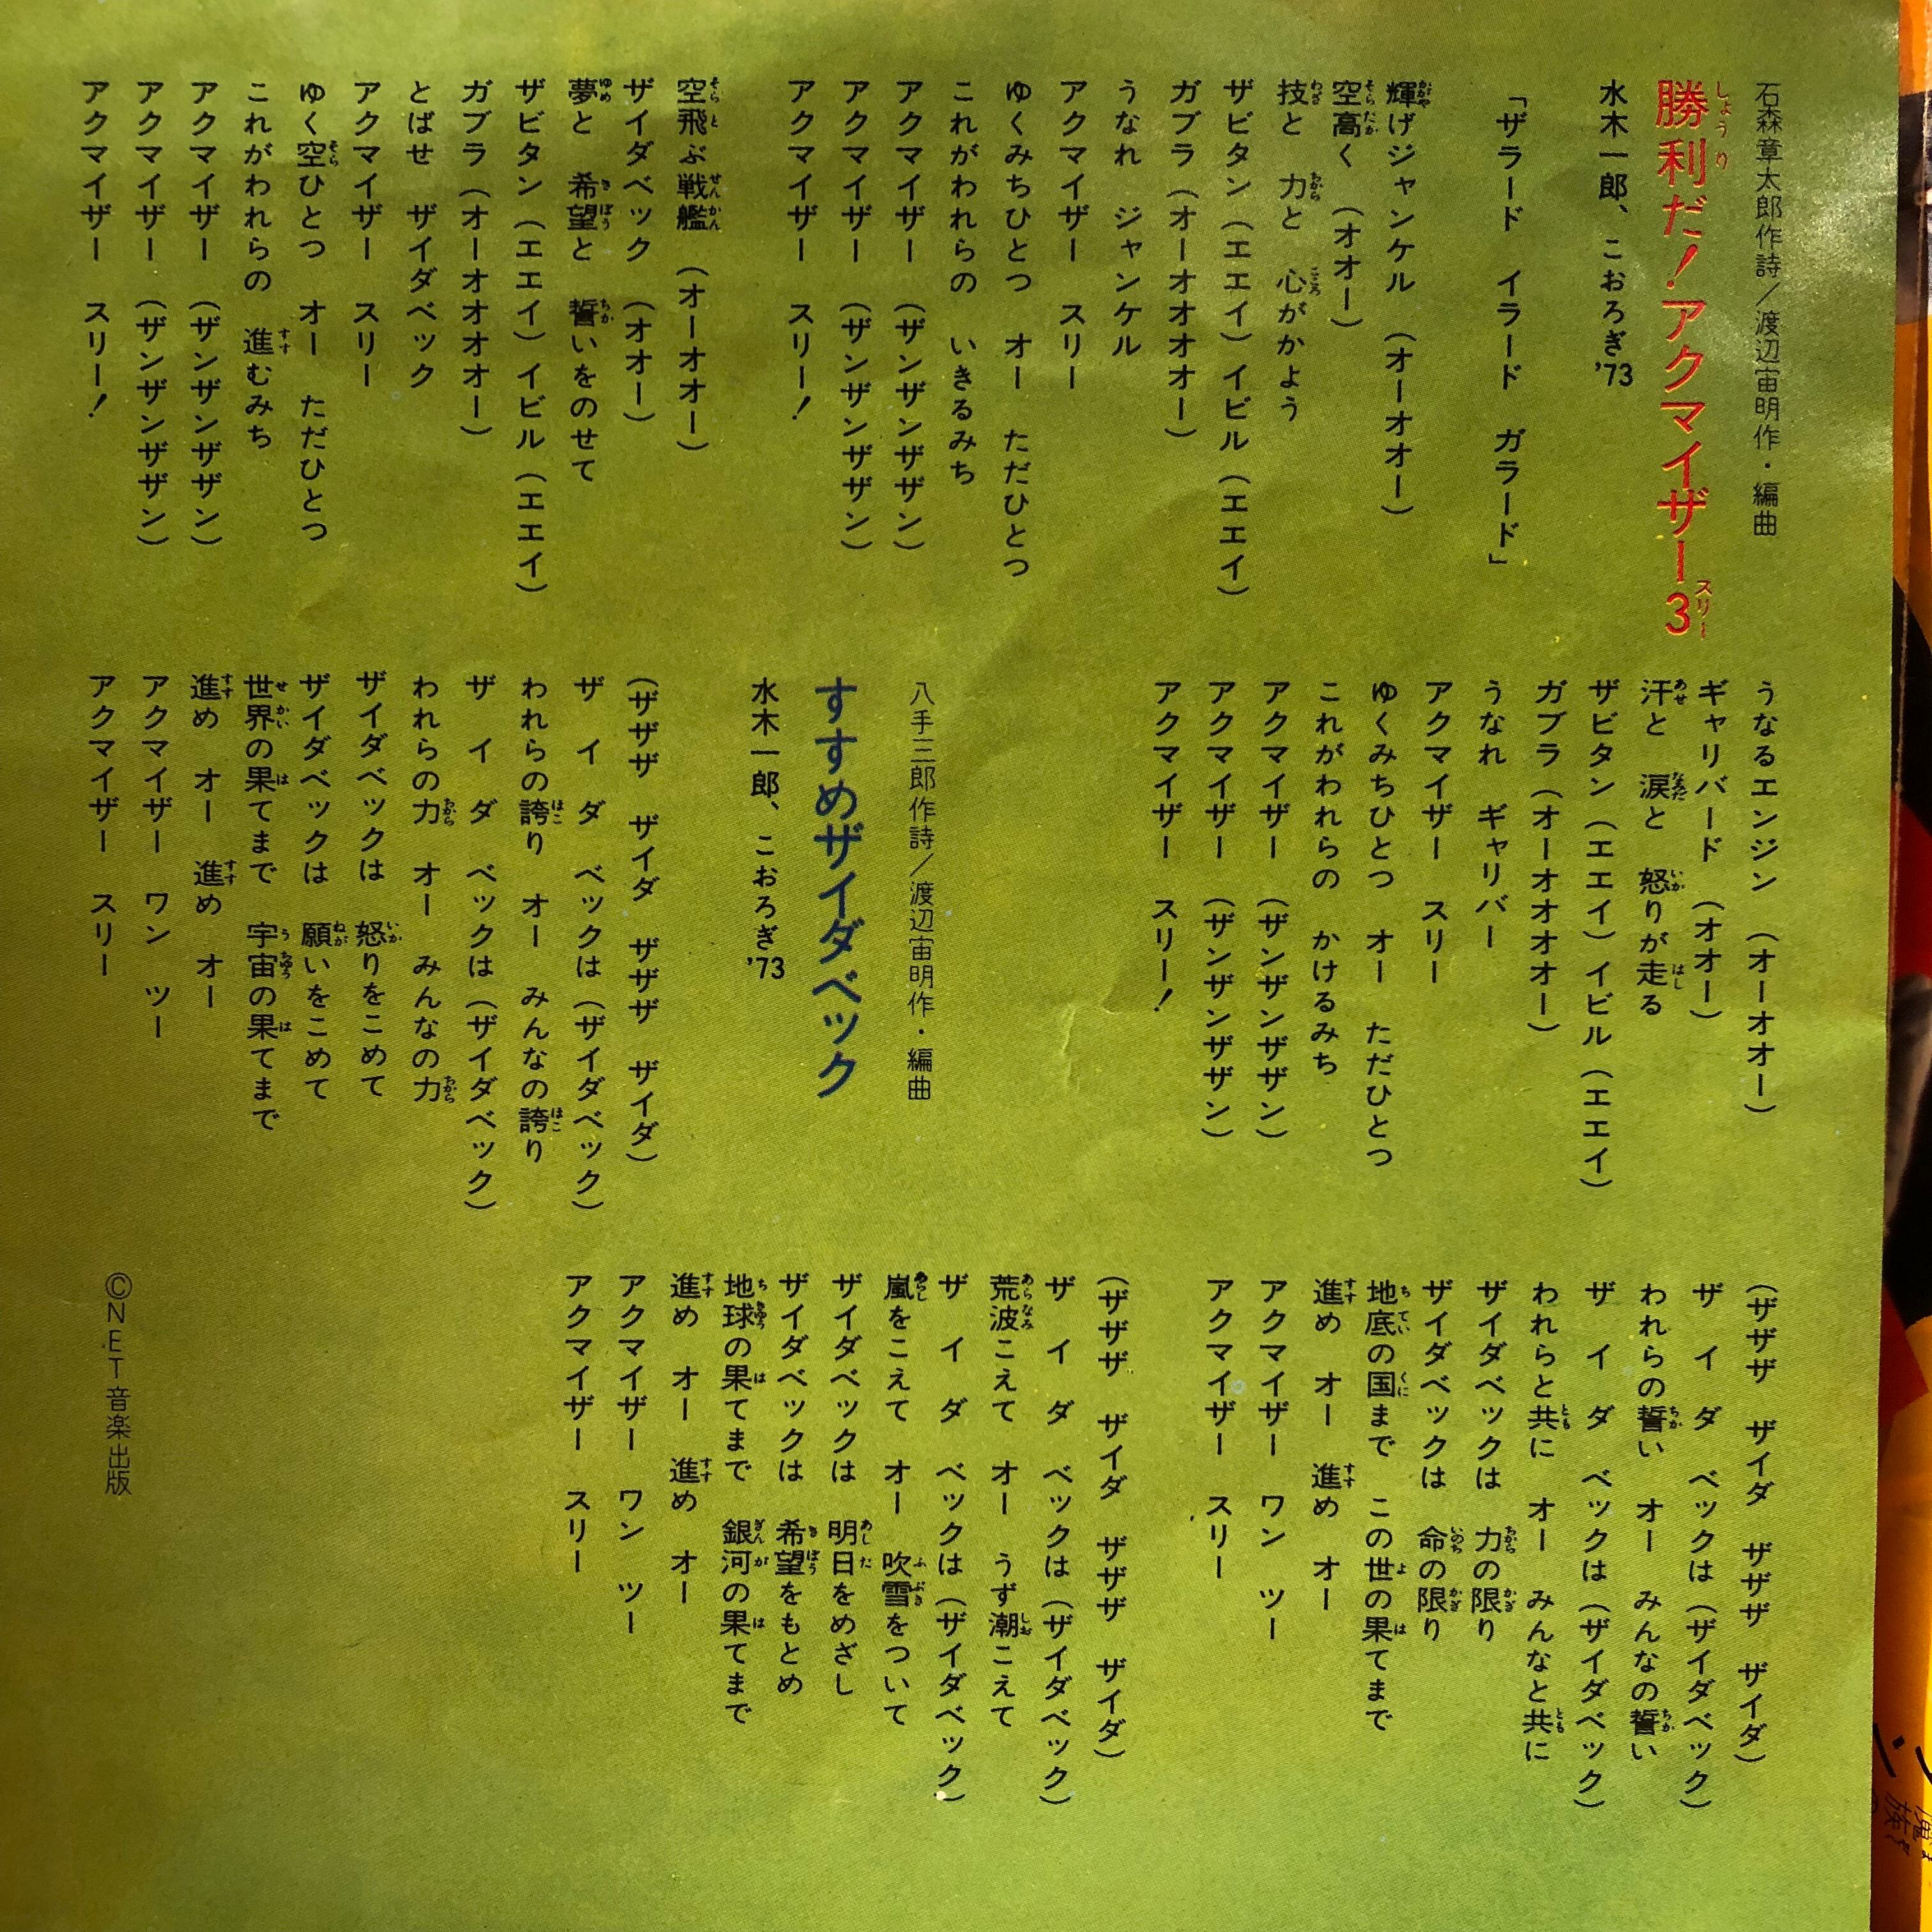 石森章太郎作詩／渡辺宙明作・編曲
勝利だ！アクマイザー3
水木一郎、こおろぎ'73
「ザラード　イラード　ガラード」
輝げジャンケル　（オーオオー）
空高く　（オオー）
技と　力と　心がかよう
ザビタン（エエイ）イビル（エエイ）
ガブラ（オーオオオオー）
うなれ　ジャンケル
アクマイザー　スリー
ゆくみちひとつ　オー　ただひとつ
これがわれらの　いきるみち
アクマイザー　（ザンザンザザン）
アクマイザー　（ザンザンザザン）
アクマイザー　スリー！
空飛ぶ戦艦　（オーオオー）
ザイダベック　（オオー）
夢と　希望と　誓いをのせて
ザビタン（エエイ）イビル（エエイ）
ガブラ（オーオオオオー）
とばせ　ザイダベック
アクマイザー　スリー
ゆく空ひとつ　オー　ただひとつ
これがわれらの　進むみち
アクマイザー　（ザンザンザザン）
アクマイザー　（ザンザンザザン）
アクマイザー　スリー！
うなるエンジン　（オーオオー）
ギャリバード　（オオー）
汗と　涙と　怒りが走る
ザビタン（エエイ）イビル（エエイ）
ガブラ（オーオオオオー）
うなれ　ギャリバー
アクマイザー　スリー
ゆくみちひとつ　オー　ただひとつ
これがわれらの　かけるみち
アクマイザー　（ザンザンザザン）
アクマイザー　（ザンザンザザン）
アクマイザー　スリー！
八手三郎作詩／渡辺宙明作・編曲
すすめザイダベック
水木一郎、こおろぎ'73
（ザザザ　ザイダ　ザザザ　ザイダ）
ザ　イ　ダ　ベックは（ザイダベック）
われらの誇り　オー　みんなの誇り
ザ　イ　ダ　ベックは（ザイダベック）
われらの力　オー　みんなの力
ザイダベックは　怒りをこめて
ザイダベックは　願いをこめて
世界の果てまで　宇宙の果てまで
進め　オー　進め　オー
アクマイザー　ワン　ツー
アクマイザー　スリー
（ザザザ　ザイダ　ザザザ　ザイダ）
ザ　イ　ダ　ベックは（ザイダベック）
われらの誓い　オー　みんなの誓い
ザ　イ　ダ　ベックは（ザイダベック）
われらと共に　オー　みんなと共に
ザイダベックは　力の限り
ザイダベックは　命の限り
地底の国まで　この世の果てまで
進め　オー　進め　オー
アクマイザー　ワン　ツー
アクマイザー　スリー
（ザザザ　ザイダ　ザザザ　ザイダ）
ザ　イ　ダ　ベックは（ザイダベック）
荒波こえて　オー　うず潮こえて
ザ　イ　ダ　ベックは（ザイダベック）
嵐をこえて　オー　吹雪をついて
ザイダベックは　明日をめざし
ザイダベックは　希望をもとめ
地球の果てまで　銀河の果てまで
進め　オー　進め　オー
アクマイザー　ワン　ツー
アクマイザー　スリー
©NET音楽出版